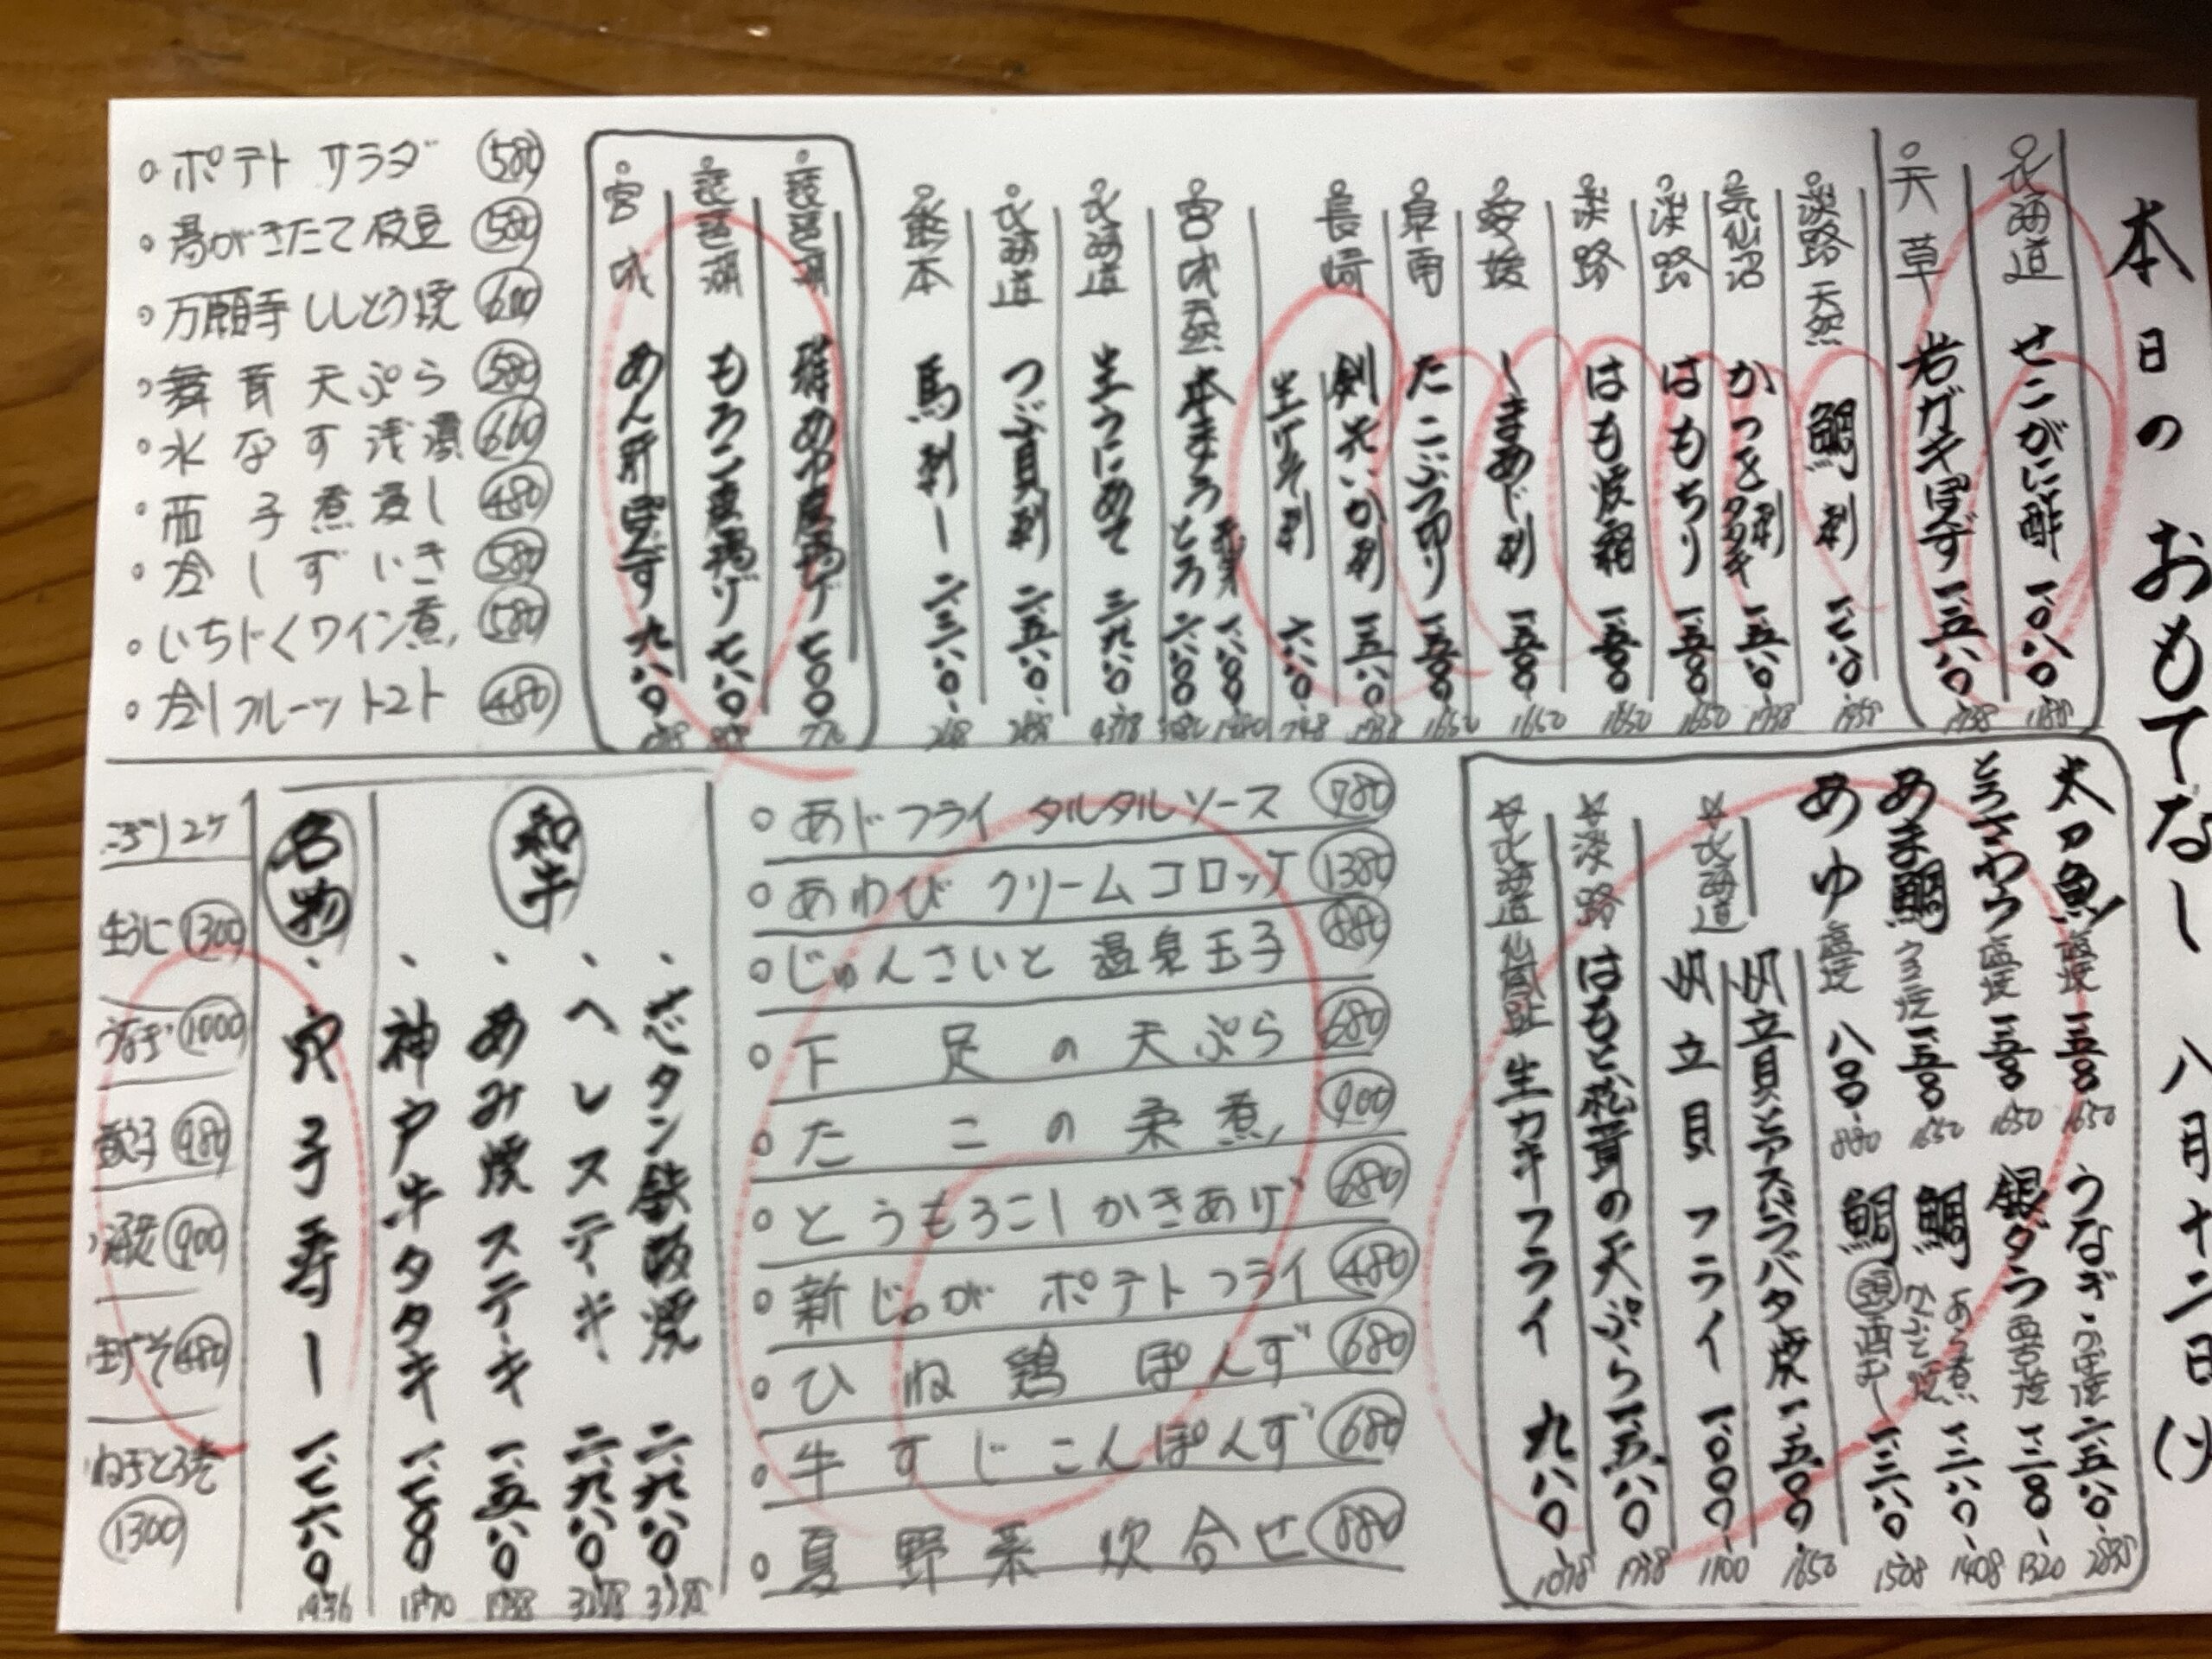 本日のおもてなし 八月十二日(火)
北海道 せこがに酢 一、〇八〇
天草 岩ガキぽんず 一、五八〇 1738
淡路 天然 鯛刺
気仙沼 かつを 刺 タタキ 一、五八〇 1738
淡路 はもちり 一、五〇〇 1650
淡路 はも焼霜 一、五〇〇 1650
愛媛 しまあじ刺 一、五〇〇 1650
泉南 たこぶつ切り 一、五〇〇 1650
長崎 剣先いか刺 一、五八〇 1738
生げそ刺 六八〇 748
宮城 天然 本まぐろ
とろ 二、八〇〇
北海道 生うにめて 三、九八〇 4378
北海道 つぶ貝刺 二、五八〇
熊本 馬刺し
琵琶湖 稚あゆ唐揚げ 七〇〇 770
琵琶湖 もろこ唐揚げ 七八〇
宮城 あん肝ぽんず 九八〇
ポテトサラダ 580
湯がきたて枝豆 580
万願寺ししとう焼
舞茸天ぷら 580
水なす浅漬 660
茄子煮浸し 480
冷しずいき 580
いちじくワイン煮 580
冷しフルーツトマト 480
太刀魚 塩焼 一、五〇〇 1650
とろさわら 塩焼 一、五〇〇 1650
あま鯛 ウロコ焼 一、五〇〇 1650
あゆ 塩焼 八〇〇 880
うなぎ 二、五八〇
銀ダラ 西京焼 一、二〇〇 1320
鯛 あら煮 かぶと焼 一、二八〇 1408
鯛 頭 酒むし
帆立貝とアスパラバタ焼 一、五〇〇 1650
北海道 帆立貝フライ 一、〇〇〇 1100
淡路 はもと松茸の天ぷら 一、五八〇 1738
北海道 仙鳳趾 生カキフライ 九八〇 1078
あじフライ タルタルソース 780
あわび クリームコロッケ 1380
じゅんさいと 温泉玉子 880
下足の天ぷら 680
たこの柔煮 900
とうもろこしかきあげ 680
新じゃが ポテトフライ 480
ひね鶏ぽんず 680
牛すじこんぽんず 680
夏野菜炊合せ 880
和牛
芯タン鉄板焼 二、九八〇
ヘレステーキ 二、九八〇
あみ焼ステーキ 一、五八〇 1738
神戸牛タタキ 一、七〇〇 1870
名物
穴子寿し 一、七六〇 1936
にぎり2ケ
生うに 1300
うなぎ 1000
穴子 480
900
生げそ 480
ねぎとろ巻 1300